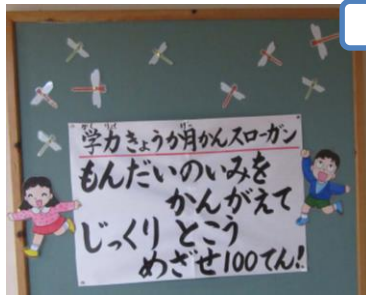 学力きょうか月かんスローガン
もんだいのいみを
かんがえて
じっくり とこう
めざせ100てん!